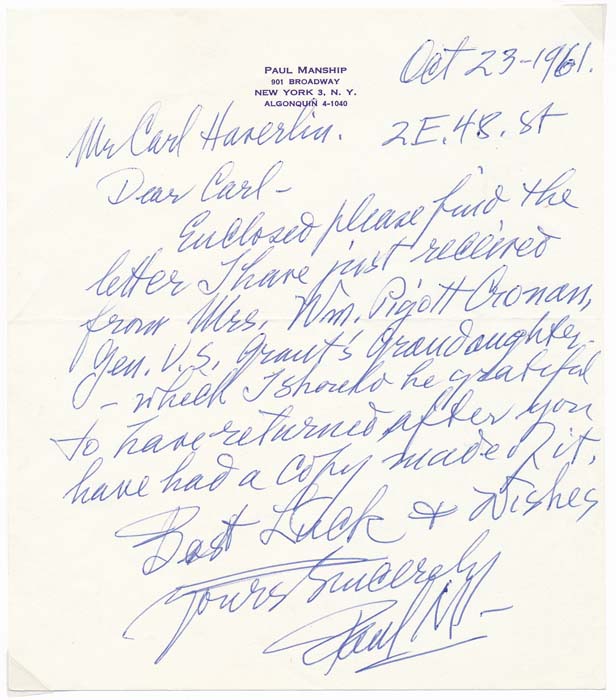 Oct 23-1961.
PAUL MANSHIP
901 BROADWAY
NEW YORK 3, N. Y.
ALGONQUIN 4-1040
Mr Carl Haverlin. 2 E. 48. St
Dear Carl-
Enclosed please find the
letter I have just received
from Mrs. Wm. Pigott Cronan,
Gen. U.S. Grant's Grandaughter-
- which I should be grateful
to have returned after you
have had a copy made of it.
Best Luck & Wishes
Yours Sincerely
Paul M-